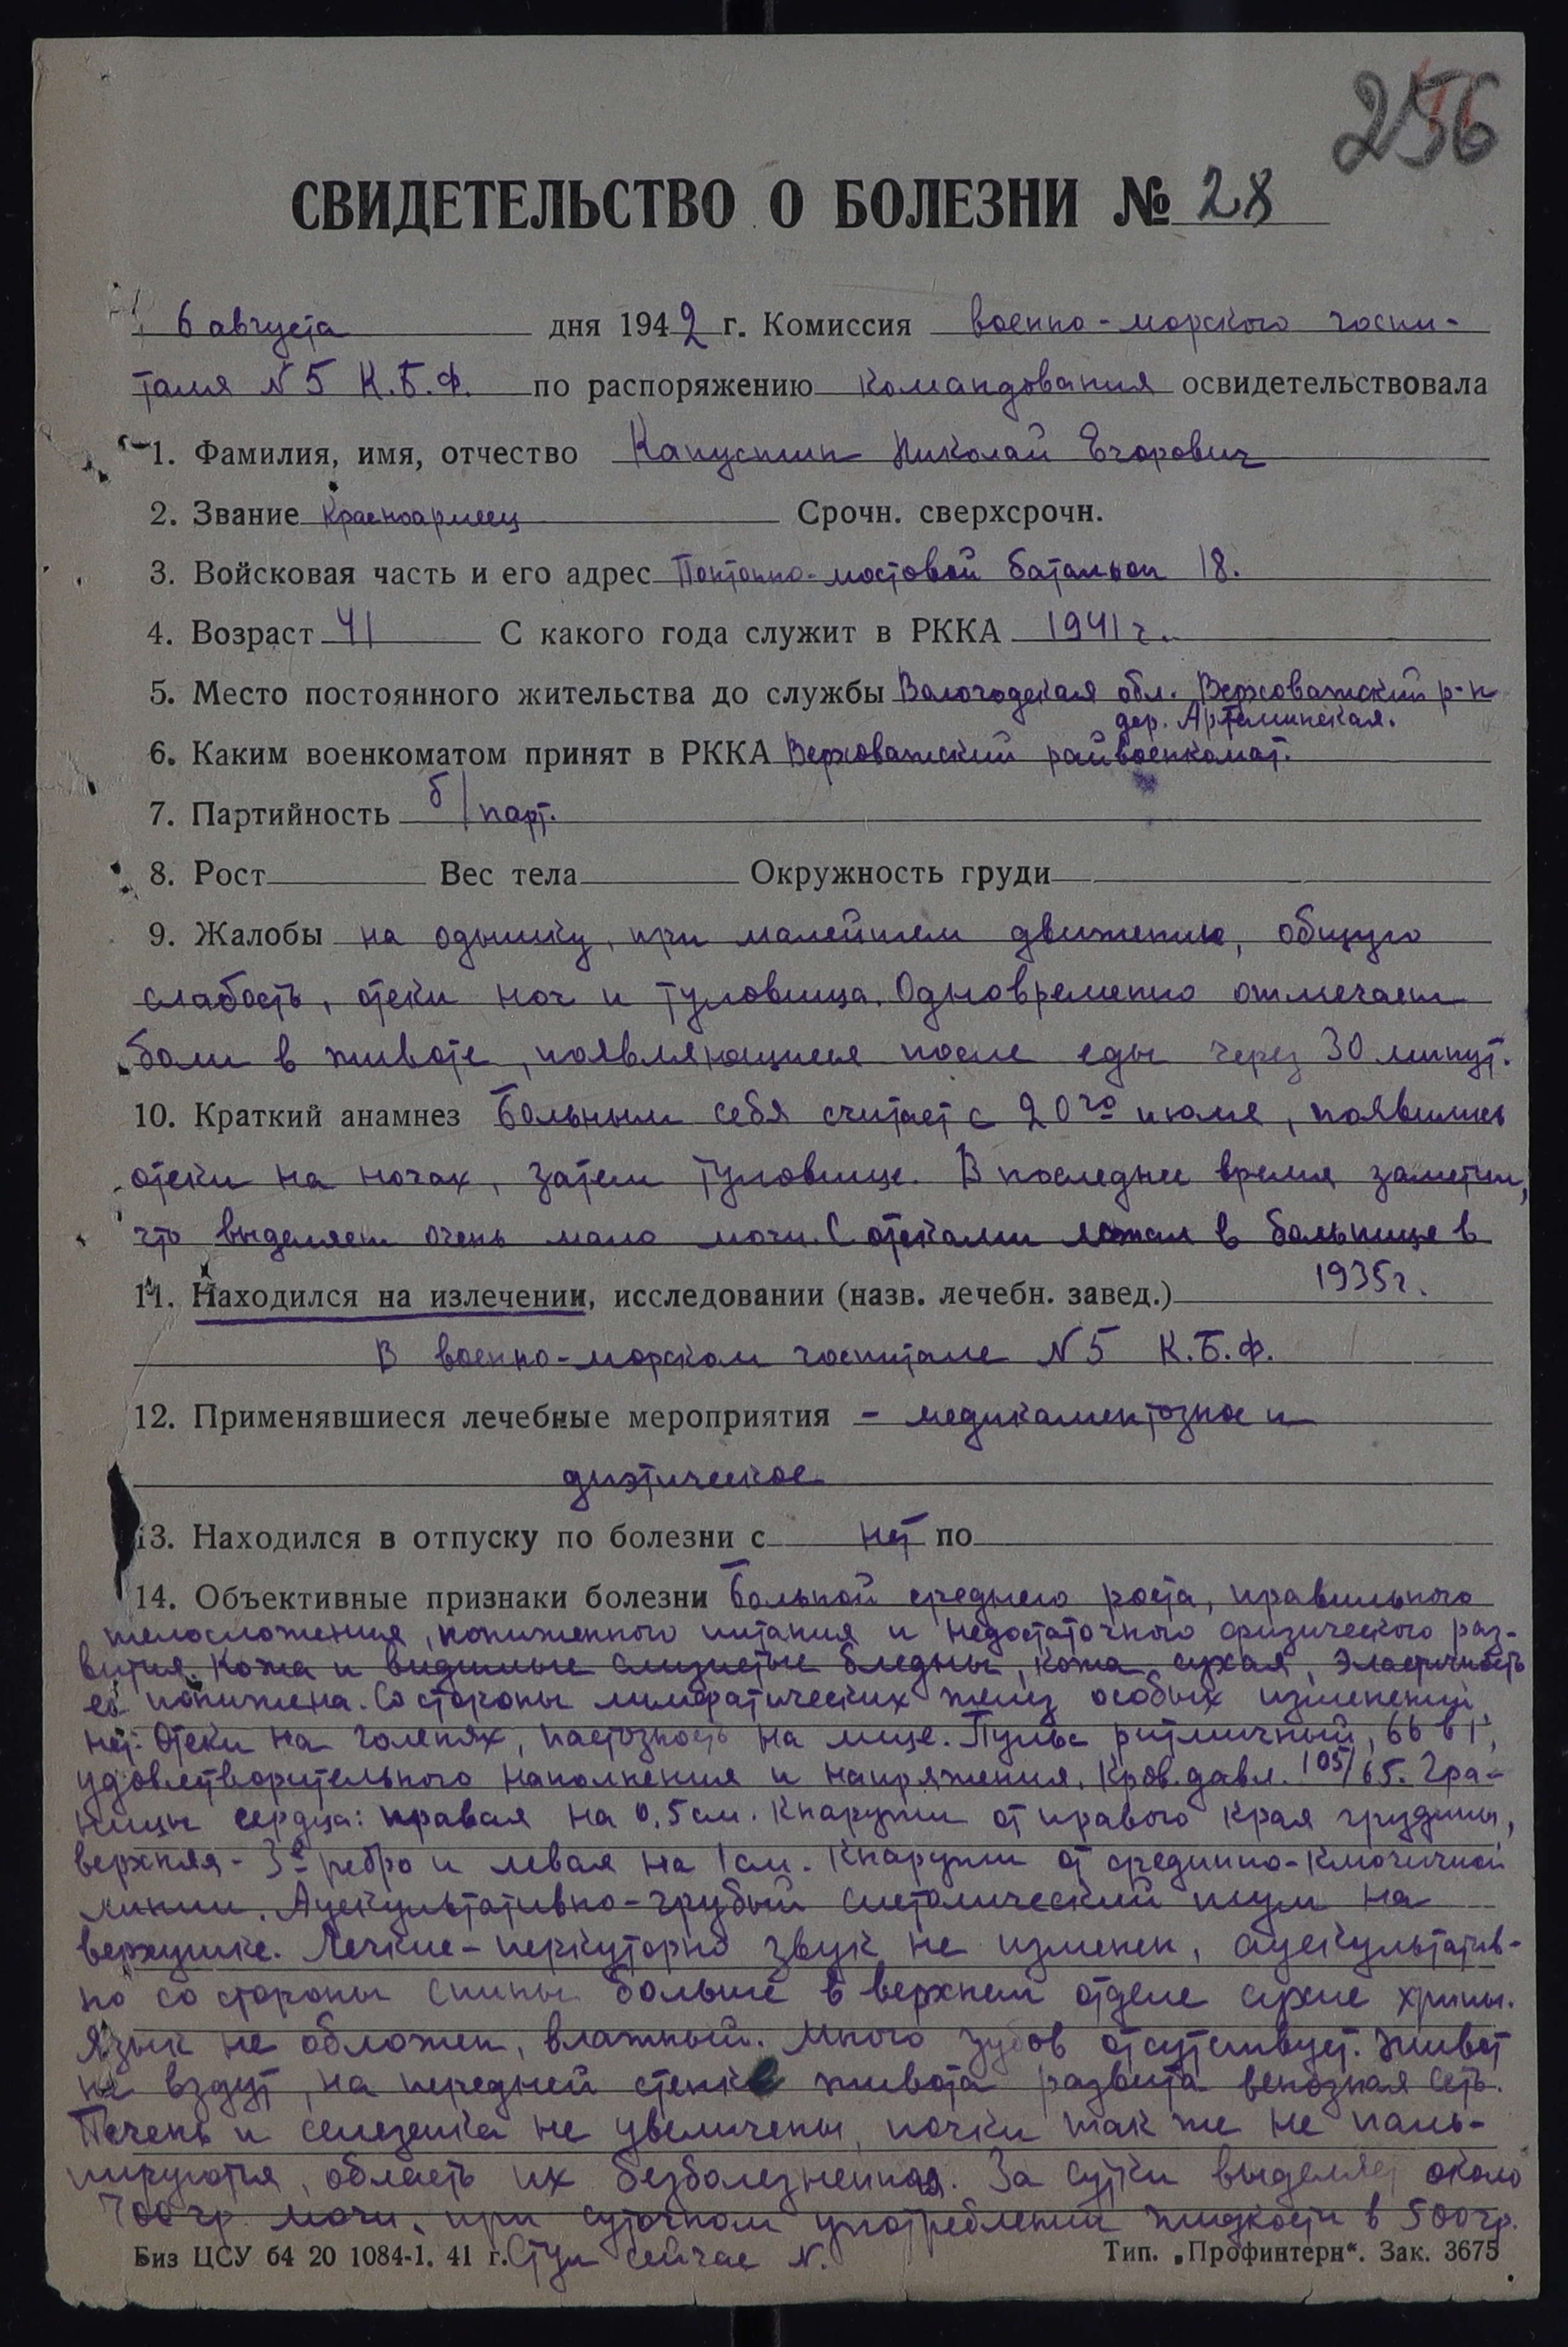 256
СВИДЕТЕЛЬСТВО О БОЛЕЗНИ № 28
6 августа дня 1942 г. Комиссия военно-морского госпи-
таля N 5 К.Б.Ф. по распоряжению командования освидетельствовала
1. Фамилия, имя, отчество Капустин Николай Егорович
2. Звание красноармеец Срочн. сверхсрочн.
3. Войсковая часть и его адрес Понтонно-мостовой батальон 18.
4. Возраст 41 С какого года служит в РККА 1941 г.
5. Место постоянного жительства до службы Вологодская обл. Верховажский р-н
дер. Артеминская.
6. Каким военкоматом принят в РККА Верховажский райвоенкомат.
7. Партийность б/парт.
8. Рост Вес тела Окружность груди
9. Жалобы на одышку, при малейшем движении, общую
слабость, отеки ног и туловища. Одновременно отмечает
боли в животе, появляющиеся после еды через 30 минут.
10. Краткий анамнез Больным себя считает с 20го июля, появились
отеки на ногах, затем туловище. В последнее время заметил,
что выделяет очень мало мочи. С отеками лежал в больнице в
1935г.
11. Находился на излечении, исследовании (назв. лечебн. завед.)
В военно-морском госпитале N 5 К.Б.Ф.
12. Применявшиеся лечебные мероприятия - медикаментозное и
диэтическое
13. Находился в отпуску по болезни с нет по
14. Объективные признаки болезни Больной среднего роста, правильного
телосложения, пониженного питания и недостаточного физического раз-
вития. Кожа и видимые слизистые бледны, кожа сухая, эластичность
её понижена. Со стороны лимфатических желез особых изменений
нет. Отеки на голенях, пастозность на лице. Пульс ритмичный, 66 в 1',
удовлетворительного наполнения и напряжения. Кров. давл. 105/65. Гра-
ницы сердца: правая на 0,5 см. кнаружи от правого края грудины,
верхняя - 3е ребро и левая на 1 см. кнаружи от срединно-ключичной
линии. Аускультативно - грубый систолический шум на
верхушке. Легкие - перкуторно звук не изменен, аускультатив-
но со стороны спины больше в верхнем отделе сухие хрипы.
Язык не обложен, влажный. Много зубов отсутствует. Живот
не вздут, на передней стенке живота развита венозная сеть.
Печень и селезенка не увеличены, почки так же не паль-
пируются, область их безболезненная. За сутки выделяет около
700 гр. мочи, при суточном употреблении жидкости в 500 гр.
Стул сейчас N.
Биз ЦСУ 64 20 1084-1. 41 г. Тип. „Профинтерн“. Зак. 3675